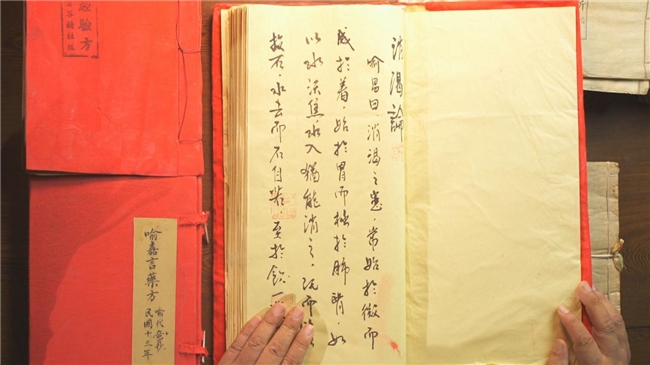 消渴論
喻昌曰。消渴之患。常始於微而
成於着。始於胃而極於肺腎。如
以水沃焦水入猶能消之。既而以
投石。水去而石自若。至於飲一
驗方
喻嘉言藥方
民國十三年